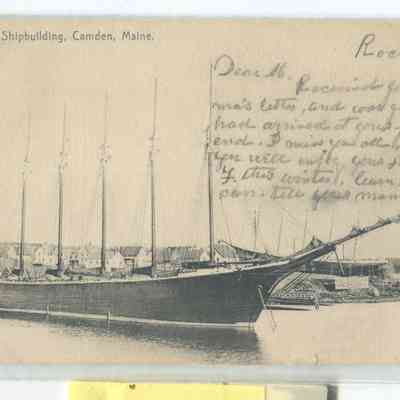 Shipbuilding, Camden, Maine.
Roc
Dear M.
Received
ma's letter, and was
had arrived at your
end. I miss you all
you will enjoy your
this winter, learn
can. tell your mam